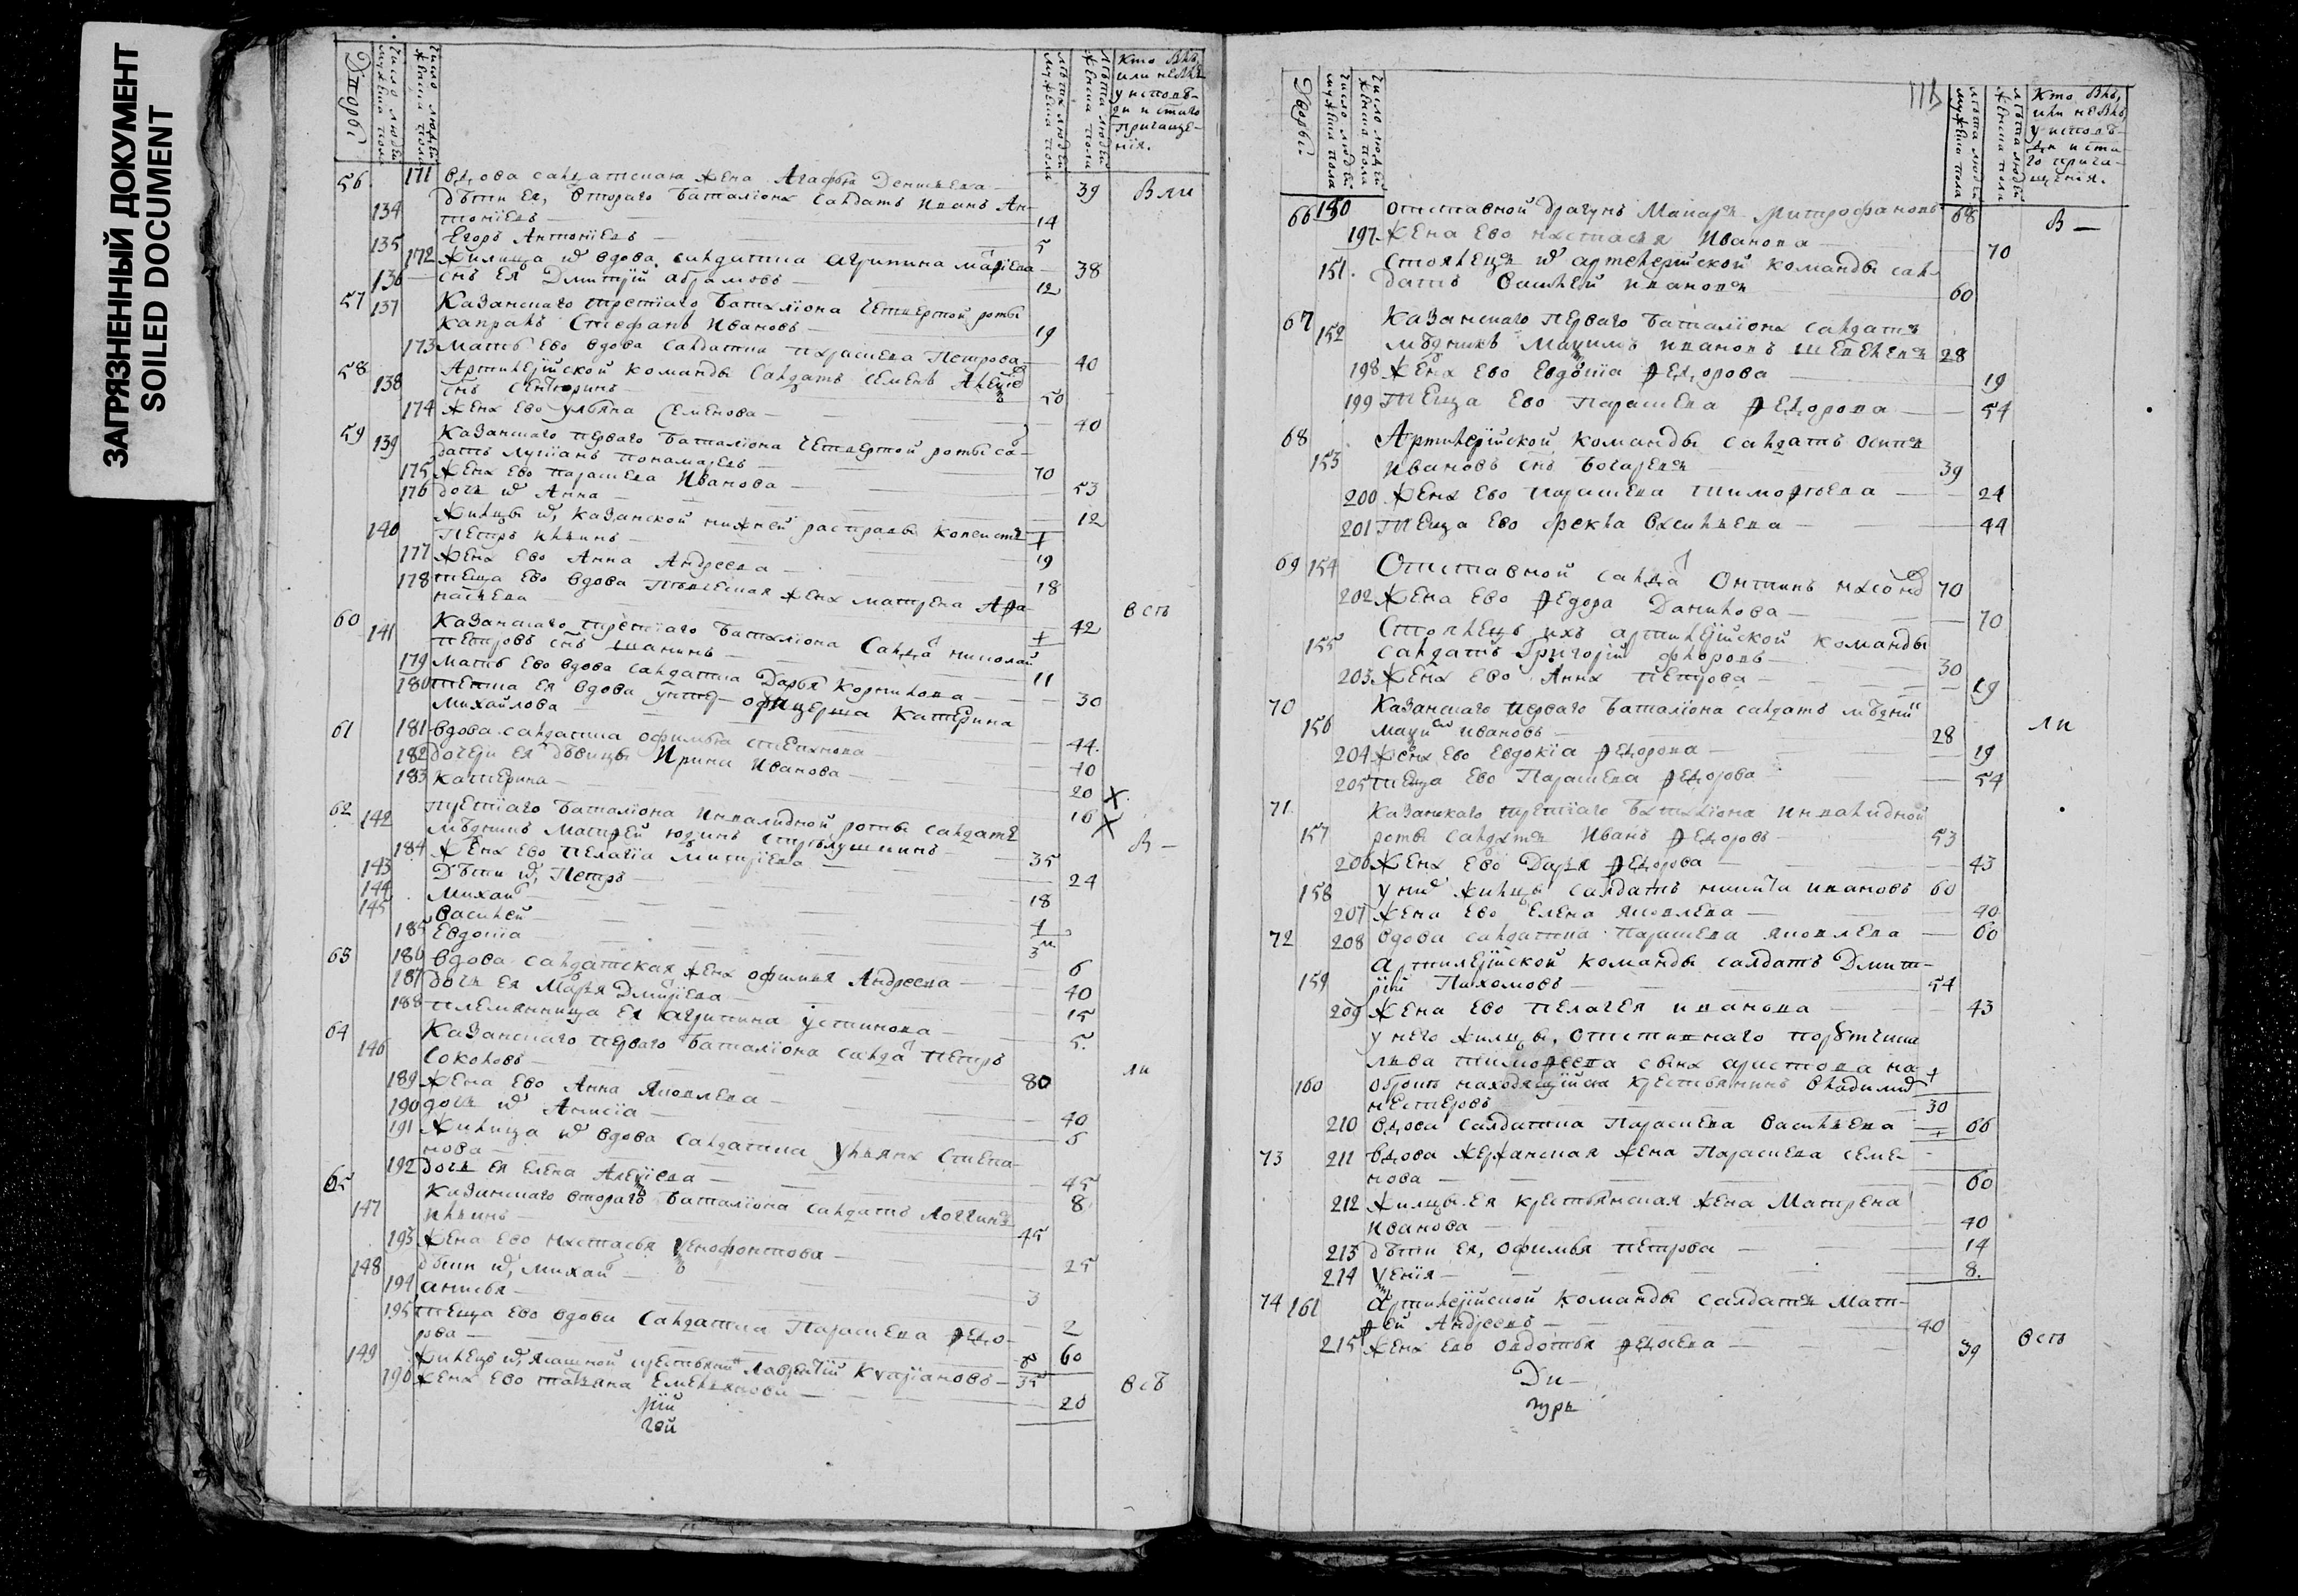 ЗАГРЯЗНЕННЫЙ ДОКУМЕНТ
SOILED DOCUMENT
Дворы
Число людей мужеска пола
Число людей женска пола
Лѣта людей мужеска пола
Лѣта людей женска пола
Кто былъ,
или не былъ
у исповѣ-
ди и стаго
причаще-
нія.
56 171 вдова салдатская жена Агафья 39 Были
134 дѣти ея, втораго баталіона салдатъ иванъ Ан-
тоніевъ 14
135 Егоръ Антоніевъ 5
172 жилица вдова салдатка агрипина 38
136 снъ ея Димитрій абрамовъ 12
57 137 Казанскаго третіаго баталіона четвертой роты
капралъ Стефанъ Ивановъ 19
173 Мать ево вдова салдатка параскева Петрова 40
58 Артилерійской команды салдатъ Семенъ
138 снъ 50
174 жена ево ульяна Семенова 40
59 139 Казанскаго перваго баталіона четвертой роты сал-
датъ лукіанъ понамаревъ 70
175 жена ево параскева Иванова 53
176 дочь Анна 12
жильцы казанской нижней расправы копеистъ
140 Петръ ильинъ 19
177 жена ево Анна Андреева 18
178 теща ево вдова жена матрена Афа-
насьева 42 всѣ
60 141 Казанскаго третіаго баталіона Салда николай
Петровъ снъ шанинъ 11
179 мать ево вдова салдатка Дарья Корнилова 30
180 тетка ея вдова унтер-офицерша Катерина
Михайлова 44
61 181 вдова салдатка офимья степанова 40
182 дочери ея дѣвицы Ирина Иванова 20 х
183 Катерина 16 х
62 142 третіаго баталіона инвалидной роты салдатъ
мѣдникъ Матфей юдинъ 35 В —
184 жена ево пелагіа 24
143 Дѣти Петръ 18
144 Михаи
145 василей
185 Евдокіа 6
63 186 вдова салдатская жена офимья Андреева 40
187 дочь ея Марья 15
188 племянница ея агрипина устинова 5
64 146 Казанскаго перваго баталіона салда Петръ
Соколовъ 80 ли
189 жена ево Анна Яковлева 40
190 дочь Анисіа 5
191 жилица вдова салдатка ульяна Степа-
нова 45
192 дочь ея елена 8
65 147 Казанскаго втораго баталіона салдатъ Логинъ
ильинъ 45
193 жена ево настасья 25
148 дѣти михаи 3
194 анисья 2
195 теща ево вдова Салдатка Параскева федо-
рова 60
149 жилецъ Лаврентій 35
196 жена ево татьяна Емельянова 20 всѣ
рій
гей
Дворы
Число людей мужеска пола
Число людей женска пола
Лѣта людей мужеска пола
Лѣта людей женска пола
Кто былъ,
или не былъ
у исповѣ-
ди и ста-
го прича-
щенія.
66 150 отставной драгунъ Макаръ Митрофановъ 68 В —
197 жена ево настасья Иванова 70
151 стоялецъ артилерійской команды сал-
датъ василей ивановъ 60
67 152 Казанскаго перваго баталіона салдатъ
мѣдникъ ивановъ 28
198 жена ево Евдокіа федорова 19
199 теща ево Параскева федорова 54
68 153 Артилерійской команды салдатъ осипъ
ивановъ снъ 39
200 жена ево параскева тимофѣева 24
201 теща ево фекла васильева 44
69 154 Отставной салда Онтипъ 70
202 жена ево федора Данилова 70
стоялецъ ихъ артилерійской команды
155 салдатъ григорій флоровъ 30
203 жена ево Анна петрова 19
70 Казанскаго перваго баталіона салдатъ мѣдни
156 ивановъ 28 ли
204 жена ево Евдокіа федорова 19
205 теща ево Параскева федорова 54
71 Казанскаго третіаго баталіона инвалидной
157 роты салдатъ Иванъ федоровъ 53
206 жена ево Дарья федорова 43
158 у ни жильцы салдатъ никита ивановъ 60
207 жена ево елена яковлева 40
72 208 вдова салдатка Параскева яковлева 60
артилерійской команды салдатъ Димит-
159 рій Пахомовъ 54
209 жена ево пелагея иванова 43
у него жильцы, отставнаго
льва на
160 оброкѣ находящійся крестьянинъ владими
нестеровъ 30
210 вдова салдатка Параскева васильева 66
73 211 вдова жена Параскева семе-
нова 60
212 жилцы ея крестьянская жена Матрена
иванова 40
213 дѣти ея, офимья петрова 14
214 8
74 161 артилерійской команды салдатъ Мат-
фей Андреевъ 40
215 жена ево овдотья 39 всѣ
Ди-